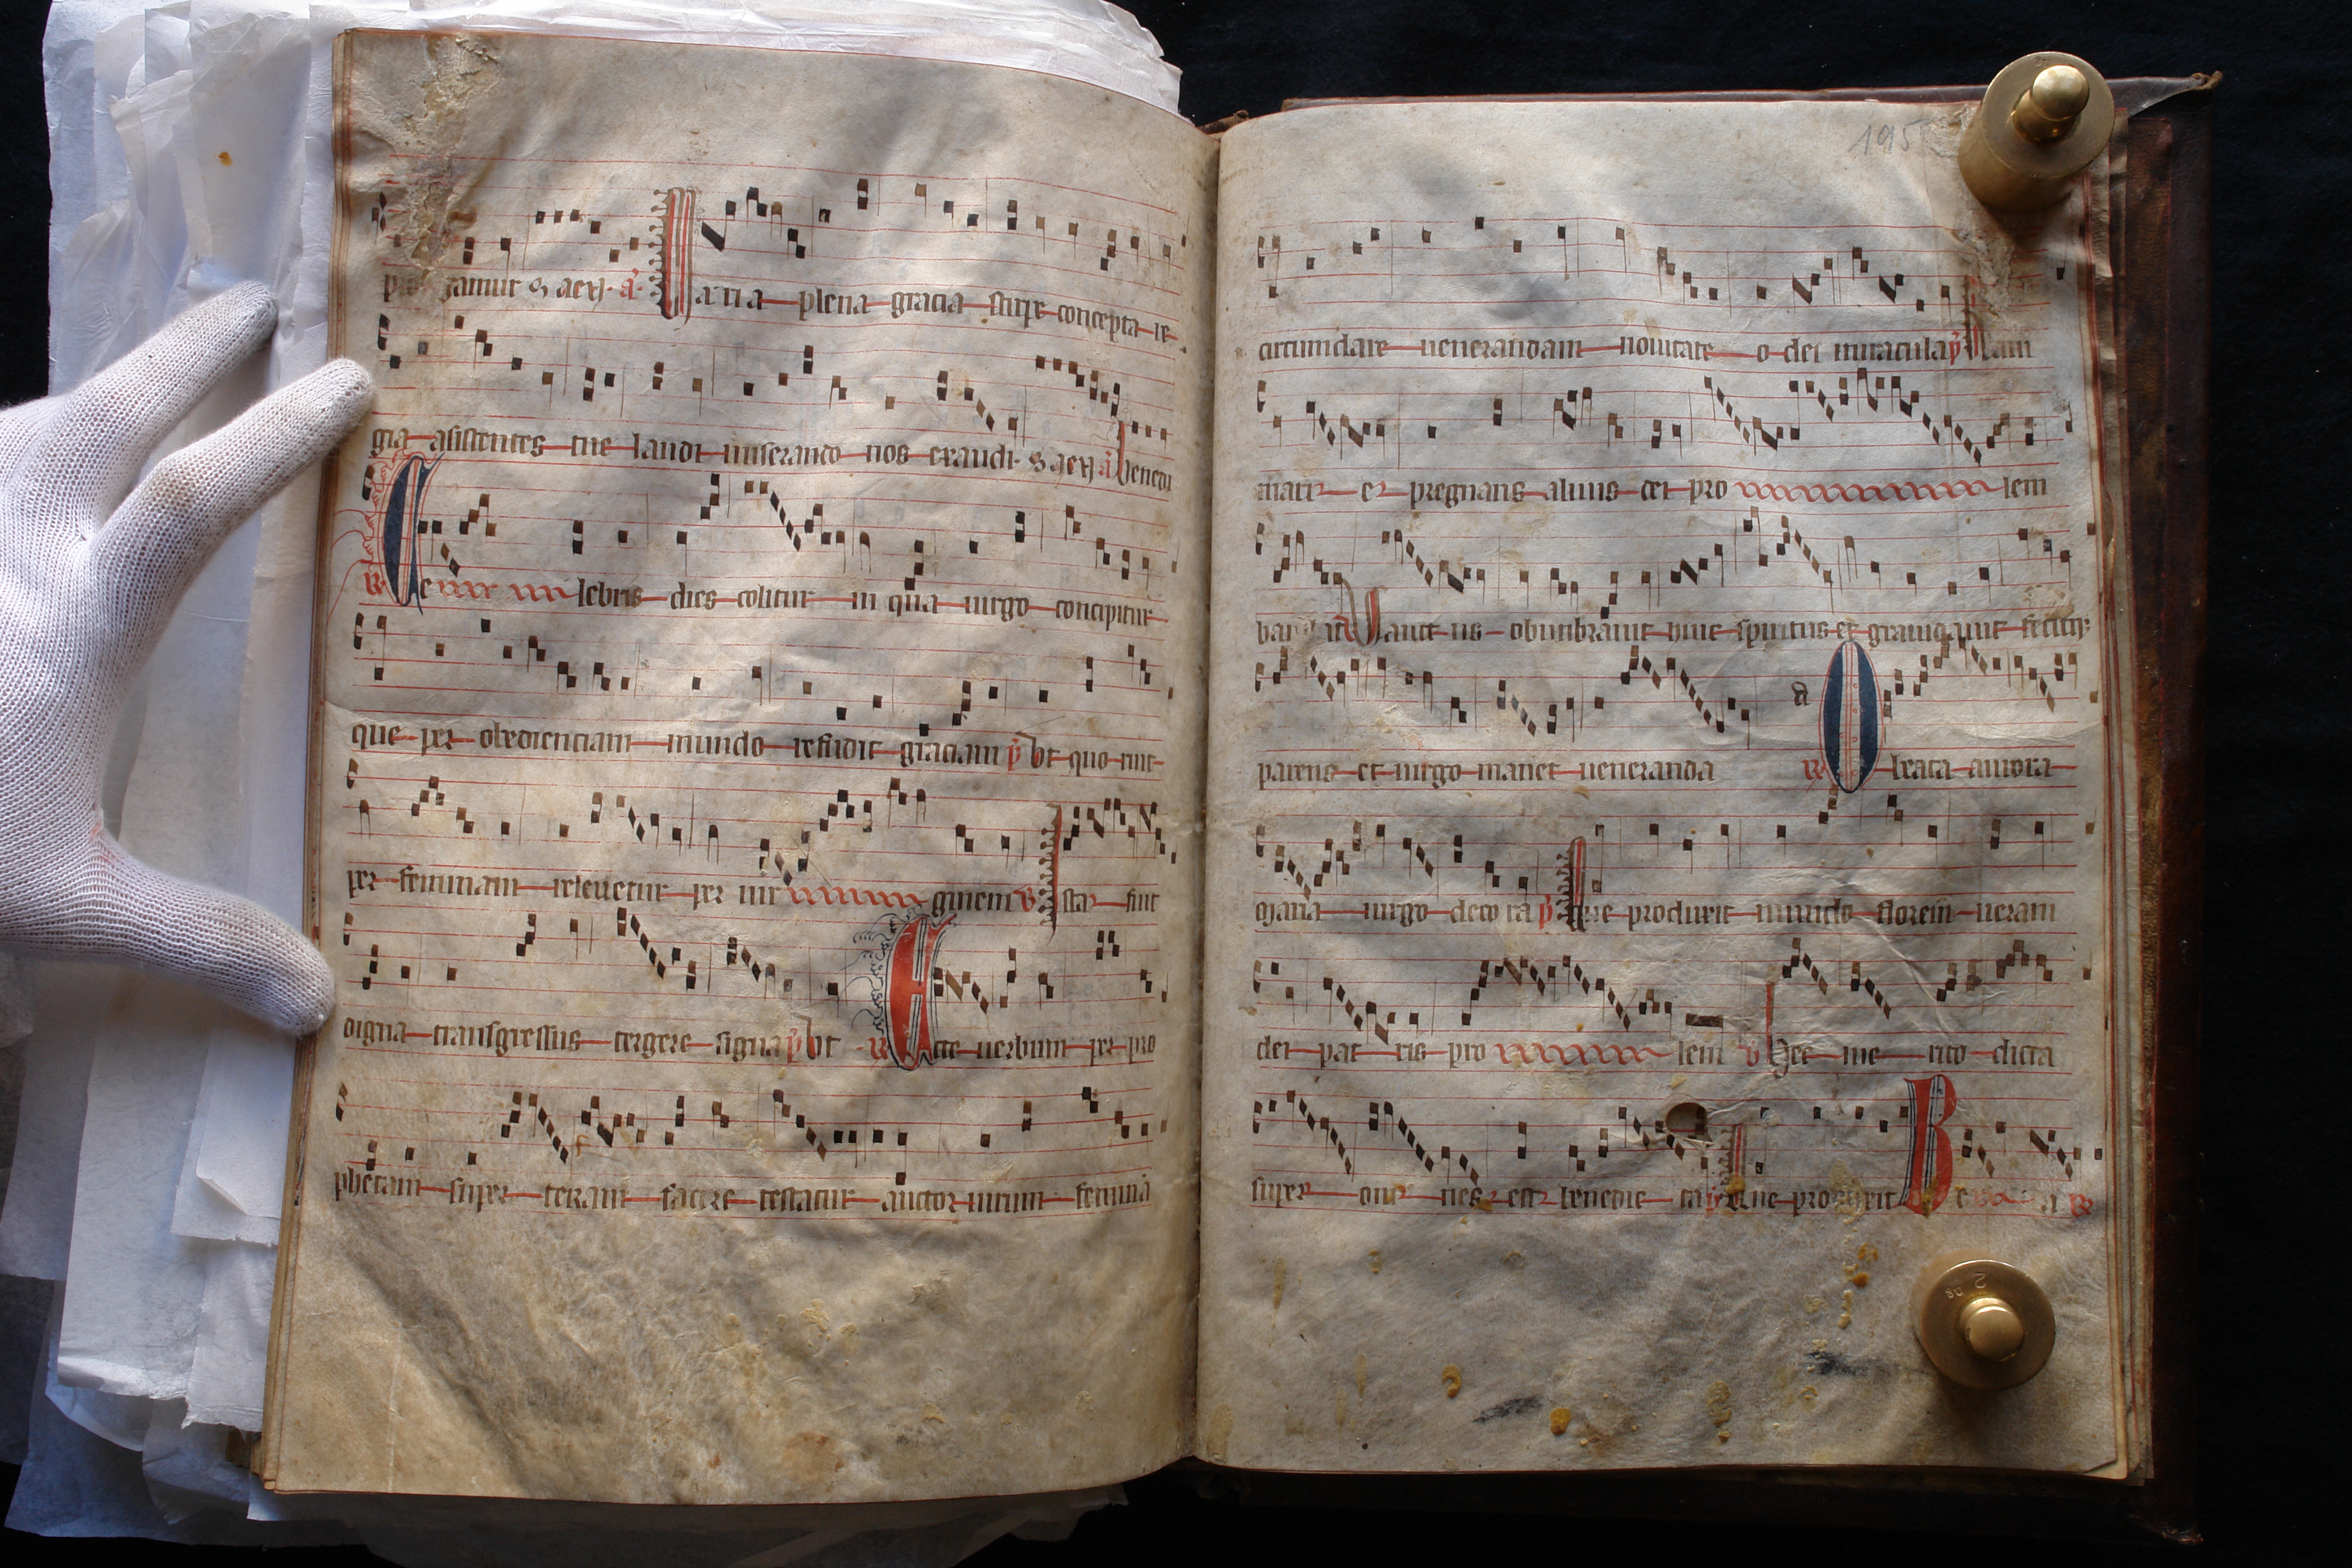 zamur S aeη a Maria plena gracia stirpe concepta re
gia asistentes tue laudi miserando nos exaudi S aeη a benedi
R Ce lebris dies colitur in qua uirgo concipitur
que per obedienciam mundo refudit graciam p Vt quo ruit
per feminam releuetur per uir ginem v Ista fuit
digna transgressus tergere signa p Vt R Ecce uerbum per pro
phetam super terram facere testatur auctor nouum femina
195
circumdare uenerandam nouitate o dei miracula p Nam
mater et pregnans aluus dei pro lem
Sanctus obumbrauit huic spiritus et grauidauit
parens et uirgo manet ueneranda a R O beata aurora
maria uirgo decora p Que produxit mundo florem ueram
dei pat ris pro lem v Hec me rito dicta
super om nes est benedic ta p Que produxit B e a R
2